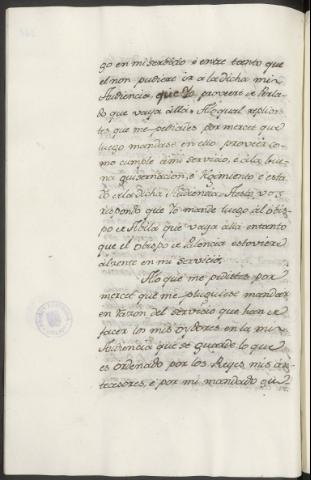 go en mi servicio e entre tanto que
el non pudiere ir a la dicha mi
Audiencia, que Yo proveere de Perla-
do que vaya allá. A lo qual replican-
tes que me pediades por merced que
luego mandase en ello proveer co-
mo cumple a mi servicio, e a la bue-
na governacion, e regimiento e esta-
do de la dicha Audiencia. A esto vos
respondo que Yo mande luego al obis-
po de que vaya alla entanto
que el obispo de Palencia estoviere
absente en mi servicio.
A lo que me pedistes por
merced que me pluguiese mandar
en razon del servicio que han de
facer los mis Oydores en la mi
Audiencia que se guarde lo que
es ordenado por los Reyes mis an-
tecesores, e por mi mandado que